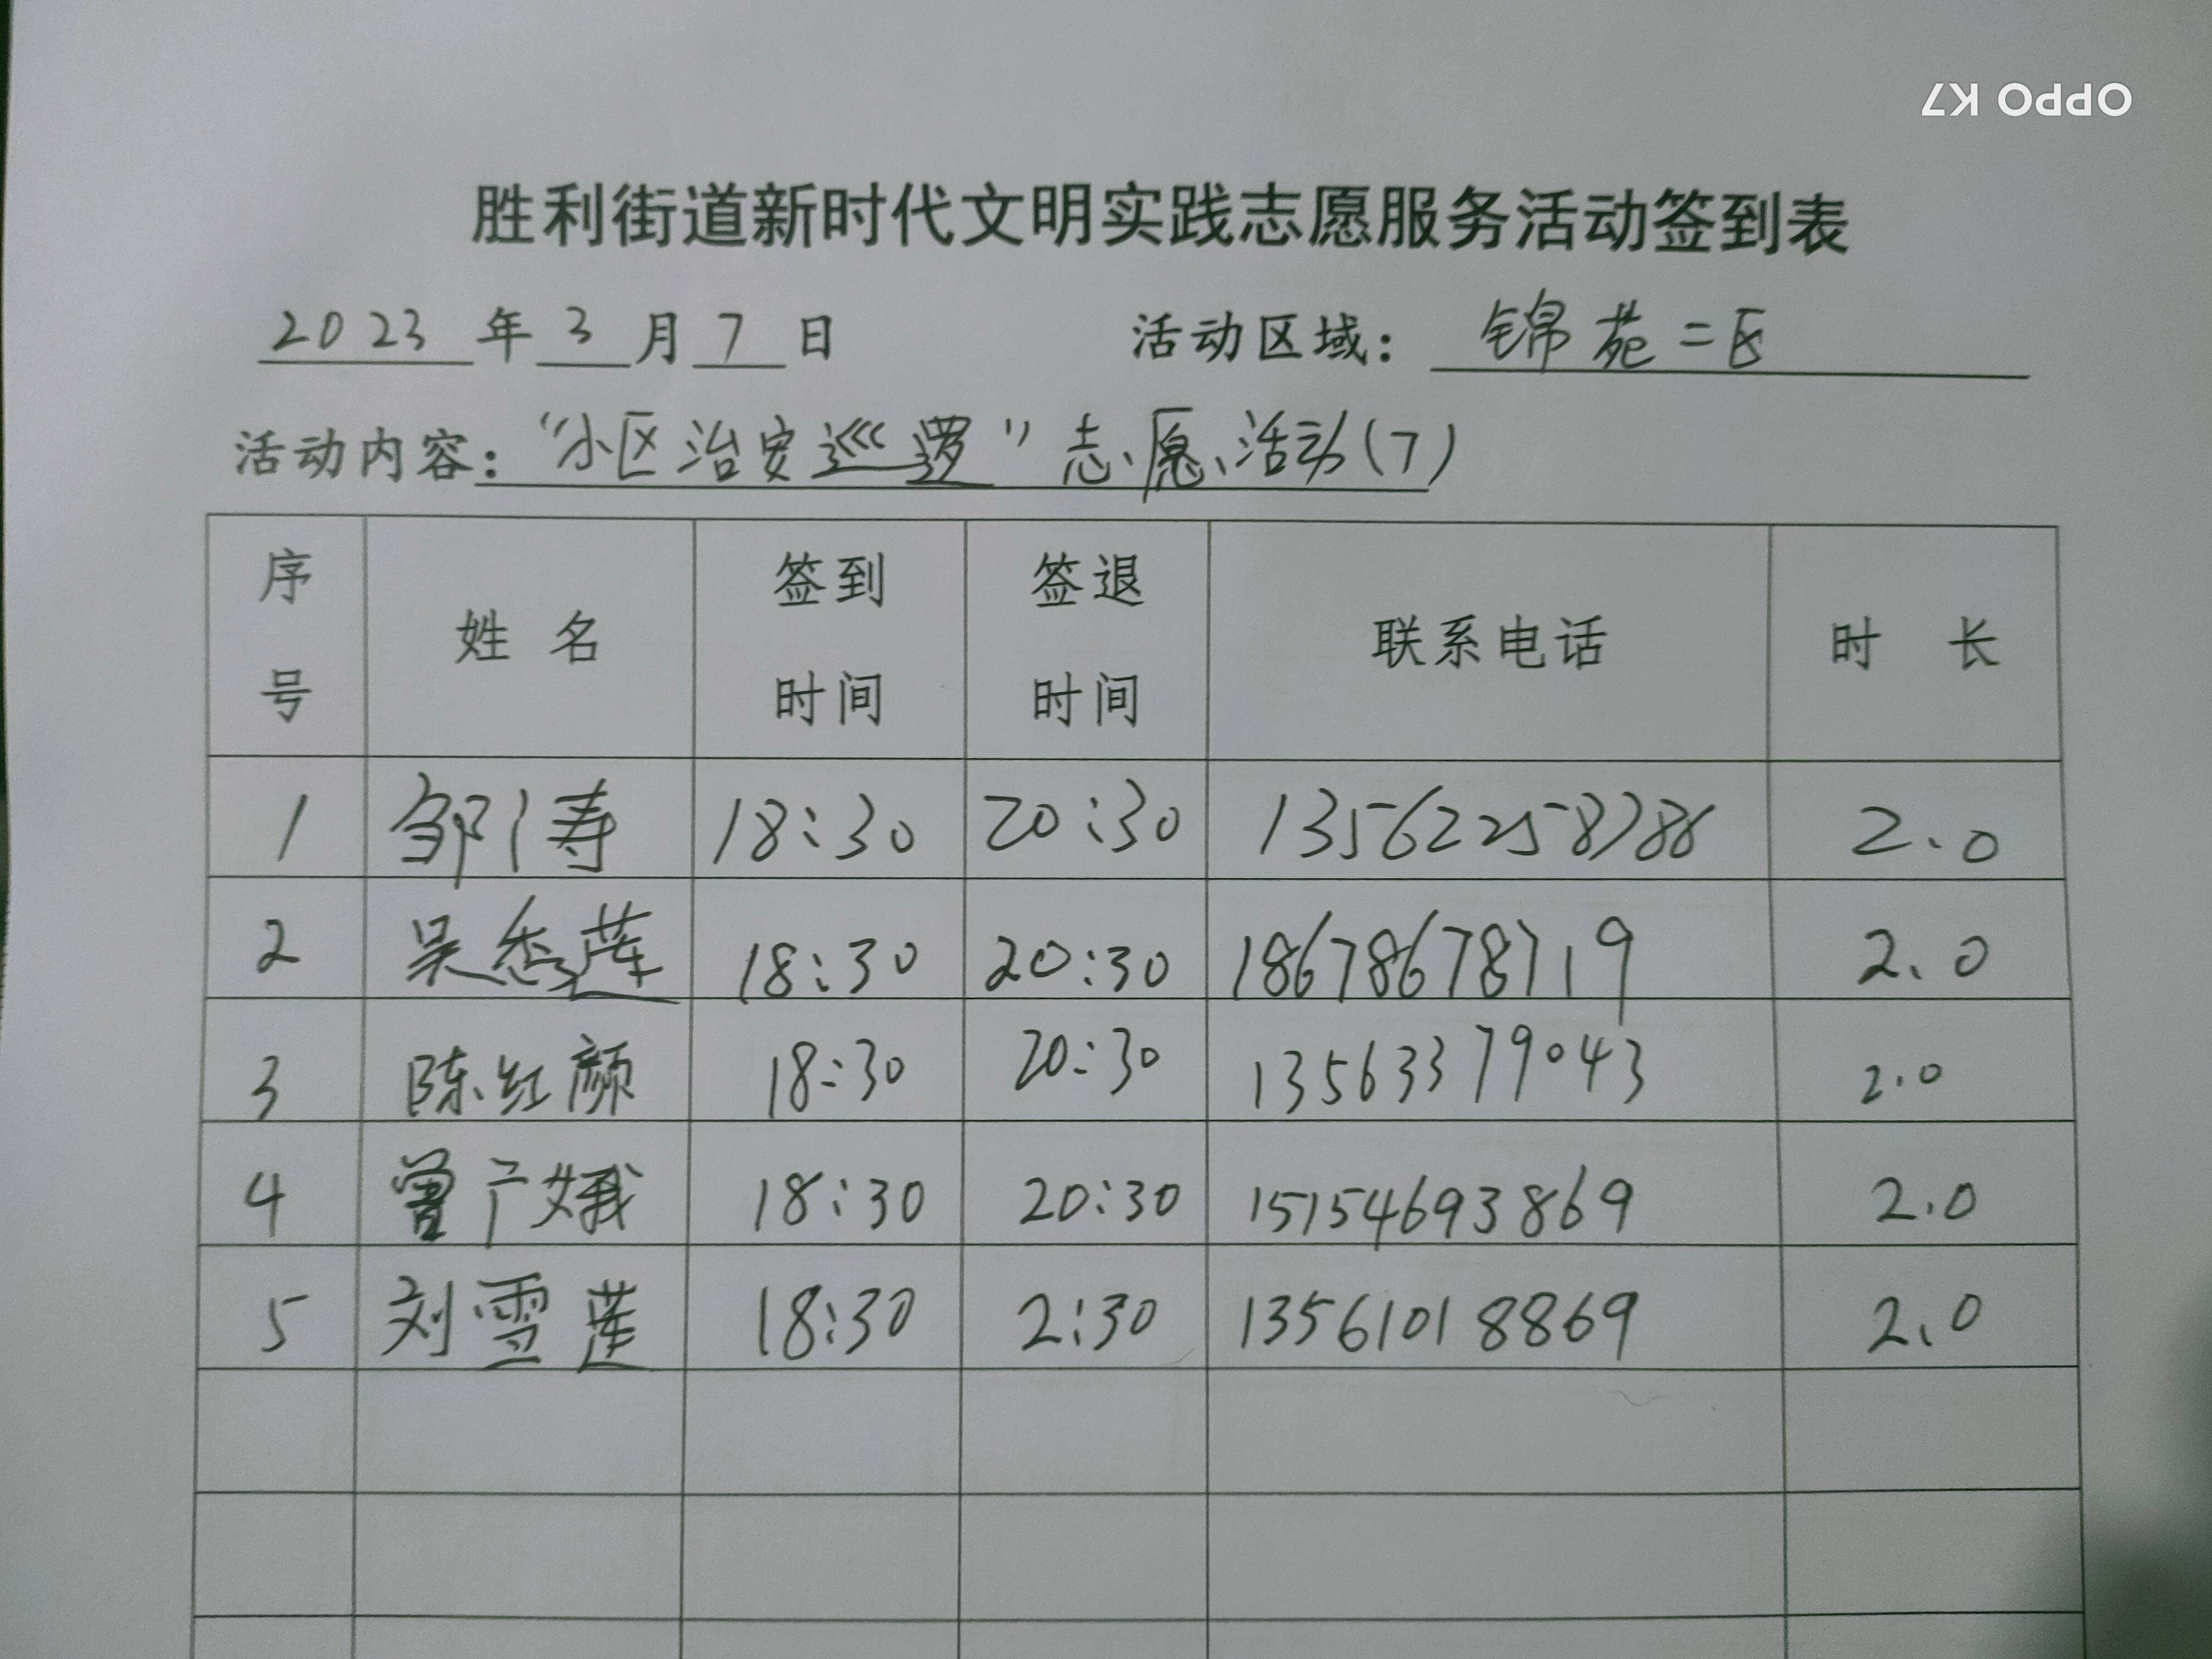 OPPO K7
胜利街道新时代文明实践志愿服务活动签到表
2023 年 3 月 7 日 活动区域： 锦苑二区
活动内容：“小区治安巡逻”志愿活动(7)
序号 姓名 签到时间 签退时间 联系电话 时长
1 邹涛 18:30 20:30 13562258786 2.0
2 吴秀莲 18:30 20:30 18678678719 2.0
3 陈红颜 18:30 20:30 13563379043 2.0
4 曾广娥 18:30 20:30 15154693869 2.0
5 刘雪莲 18:30 2:30 13561018869 2.0